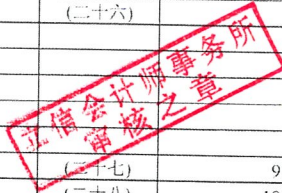 (二十六)
立信会计师事务所
审核之章
(二十七)
9
(二十八)